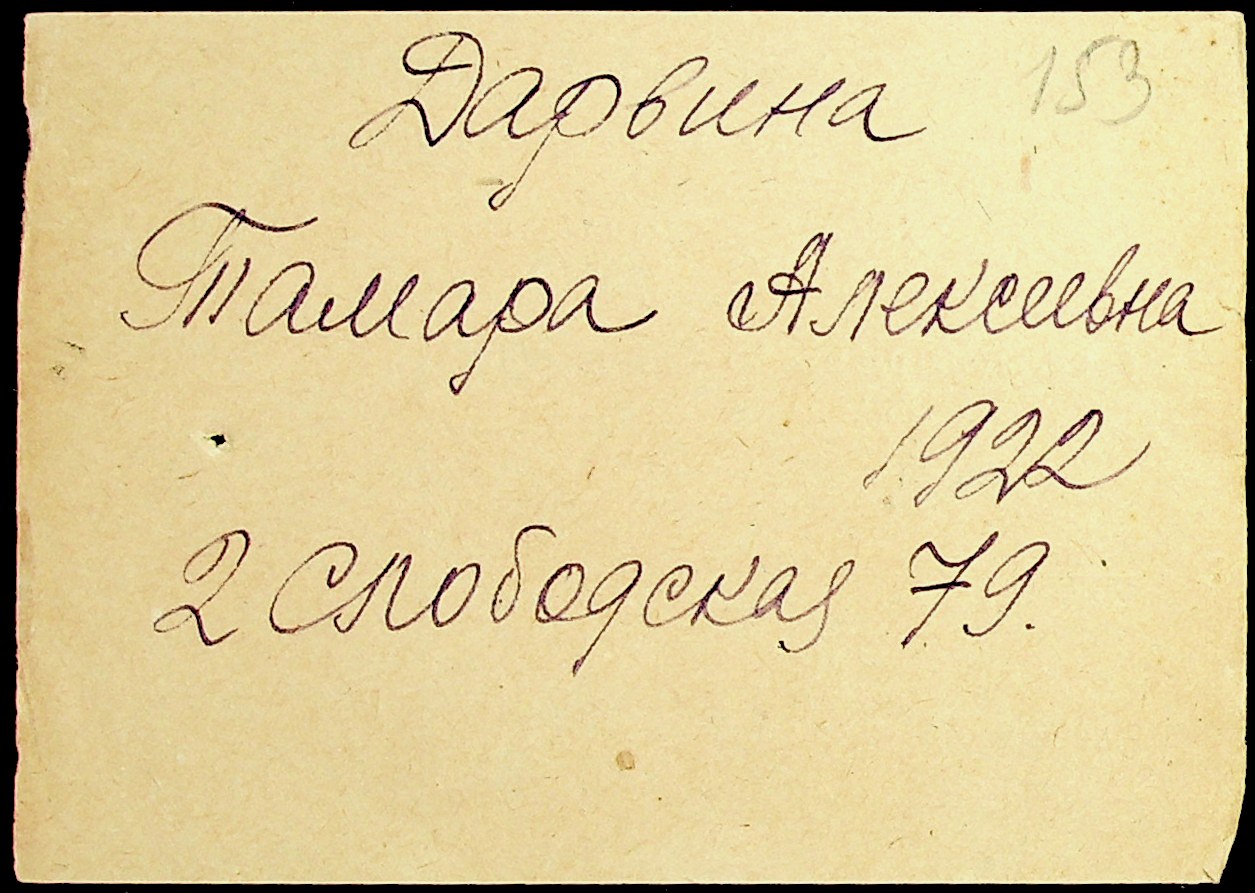 153
Дарвина
Тамара Алексеевна
1922
2 Слободская 79.